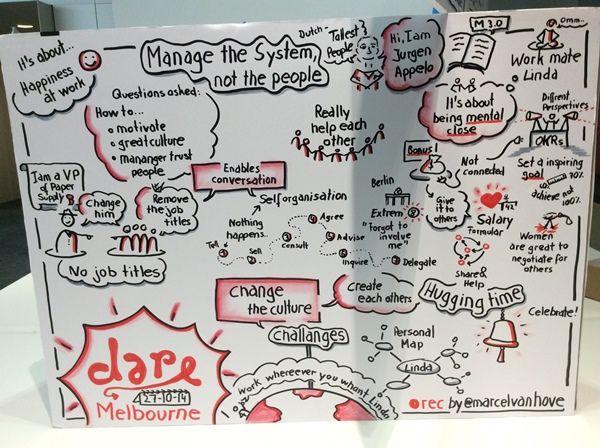 It's about...
Happiness
at work
Manage the System,
not the people
Dutch -
Tallest
People
Hi, I am
Jurgen
Appelo
M 3.0
Omm...
Work mate
Linda
Questions asked:
How to...
• motivate
• great culture
• mananger trust
people
Really
help each
other
It's about
being mental
close
Different
Perspectives
OKRs
I am a VP
of Paper
Supply
Change
him
Remove
the job
titles
No job titles
Enables
conversation
Selforganisation
Nothing
happens...
Tell
Sell
Consult
Agree
Advise
Inquire
Delegate
Berlin
Extrem
"Forgot to
involve
me"
Bonus
Give
it to
others
Not
connected
Salary
Formular
Share &
Help
Set a inspiring
goal
70%
achieve not
100%
Women
are great to
negotiate for
others
Change
the culture
Create
each others
Hugging time
Celebrate!
challanges
Work whereever you whant Linda
Personal
Map
Linda
dare
27-10-14
Melbourne
rec by @marcelvanhove